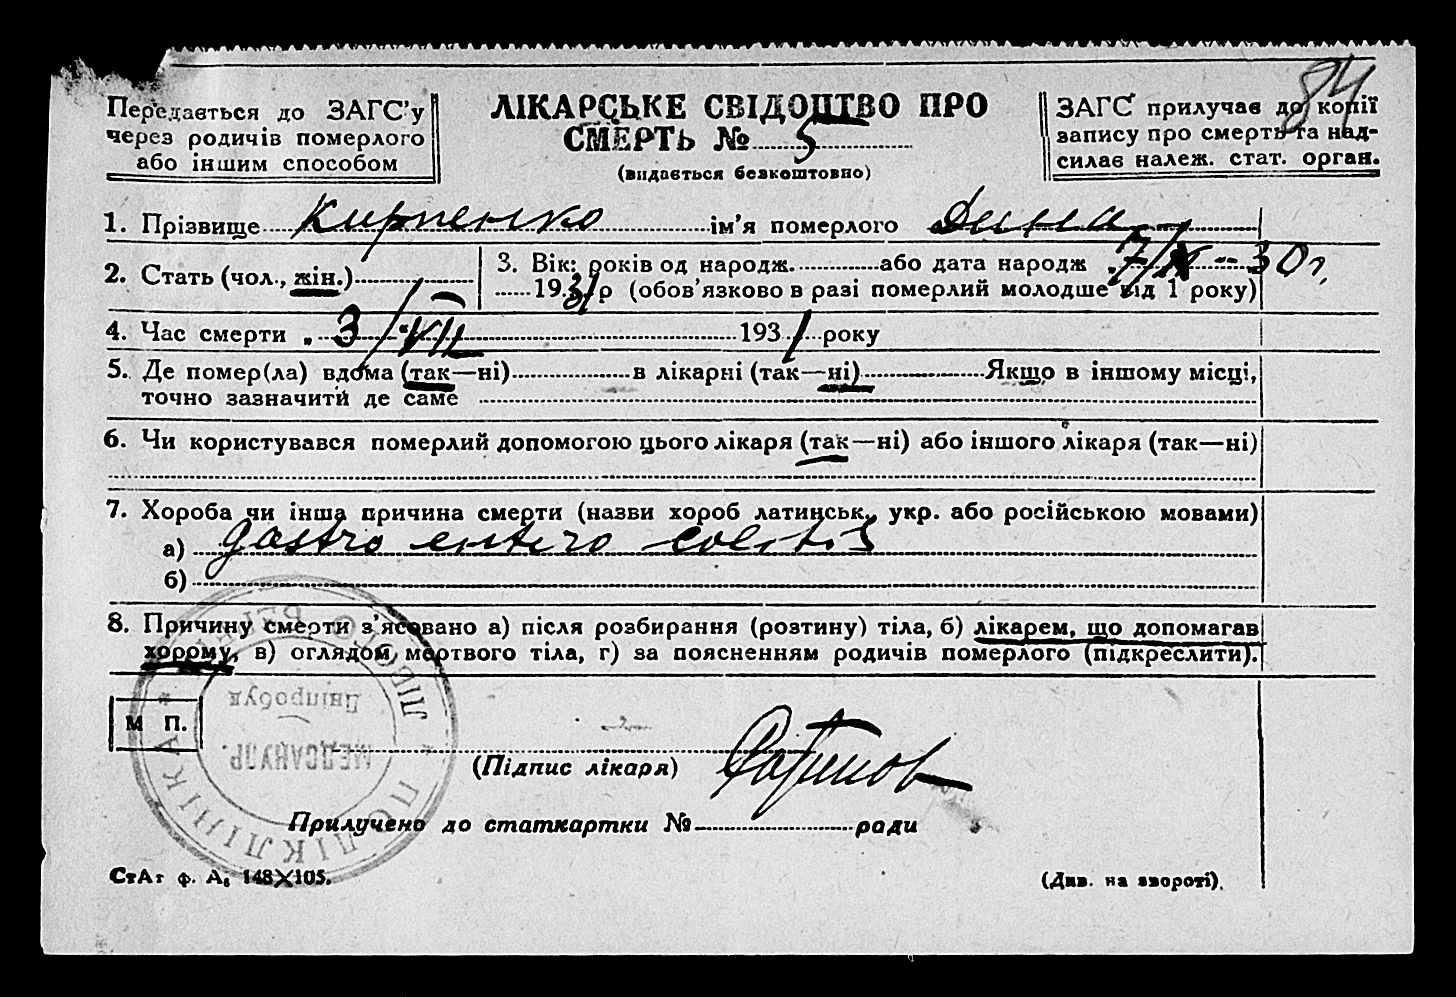 84
Передається до ЗАГС'у
через родичів померлого
або іншим способом
ЛІКАРСЬКЕ СВІДОЦТВО ПРО
СМЕРТЬ № 5
(видається безкоштовно)
ЗАГС прилучає до копії
запису про смерть та над-
силає належ. стат. орган.
1. Прізвище Кирпенко ім'я померлого Дина
2. Стать (чол., жін.)
3. Вік: років од народж. або дата народж. 7/X - 30 г.
1931 р (обов'язково в разі померлий молодше від 1 року)
4. Час смерти 3/VII 1931 року
5. Де помер(ла) вдома (так—ні) в лікарні (так—ні) Якщо в іншому місці,
точно зазначити де саме
6. Чи користувався померлий допомогою цього лікаря (так—ні) або іншого лікаря (так—ні)
7. Хороба чи інша причина смерти (назви хороб латинськ., укр. або російською мовами)
а) gastro entero colitis
б)
8. Причину смерти з'ясовано а) після розбирання (розтину) тіла, б) лікарем, що допомагав
хорому, в) оглядом мертвого тіла, г) за поясненням родичів померлого (підкреслити).
М П.
ПОЛІКЛІНІКА
Дніпробуд
МЕДСАНУПР.
(Підпис лікаря)
Прилучено до статкартки № ради
СтАт ф. А₆ 148X105.
(Див. на звороті).